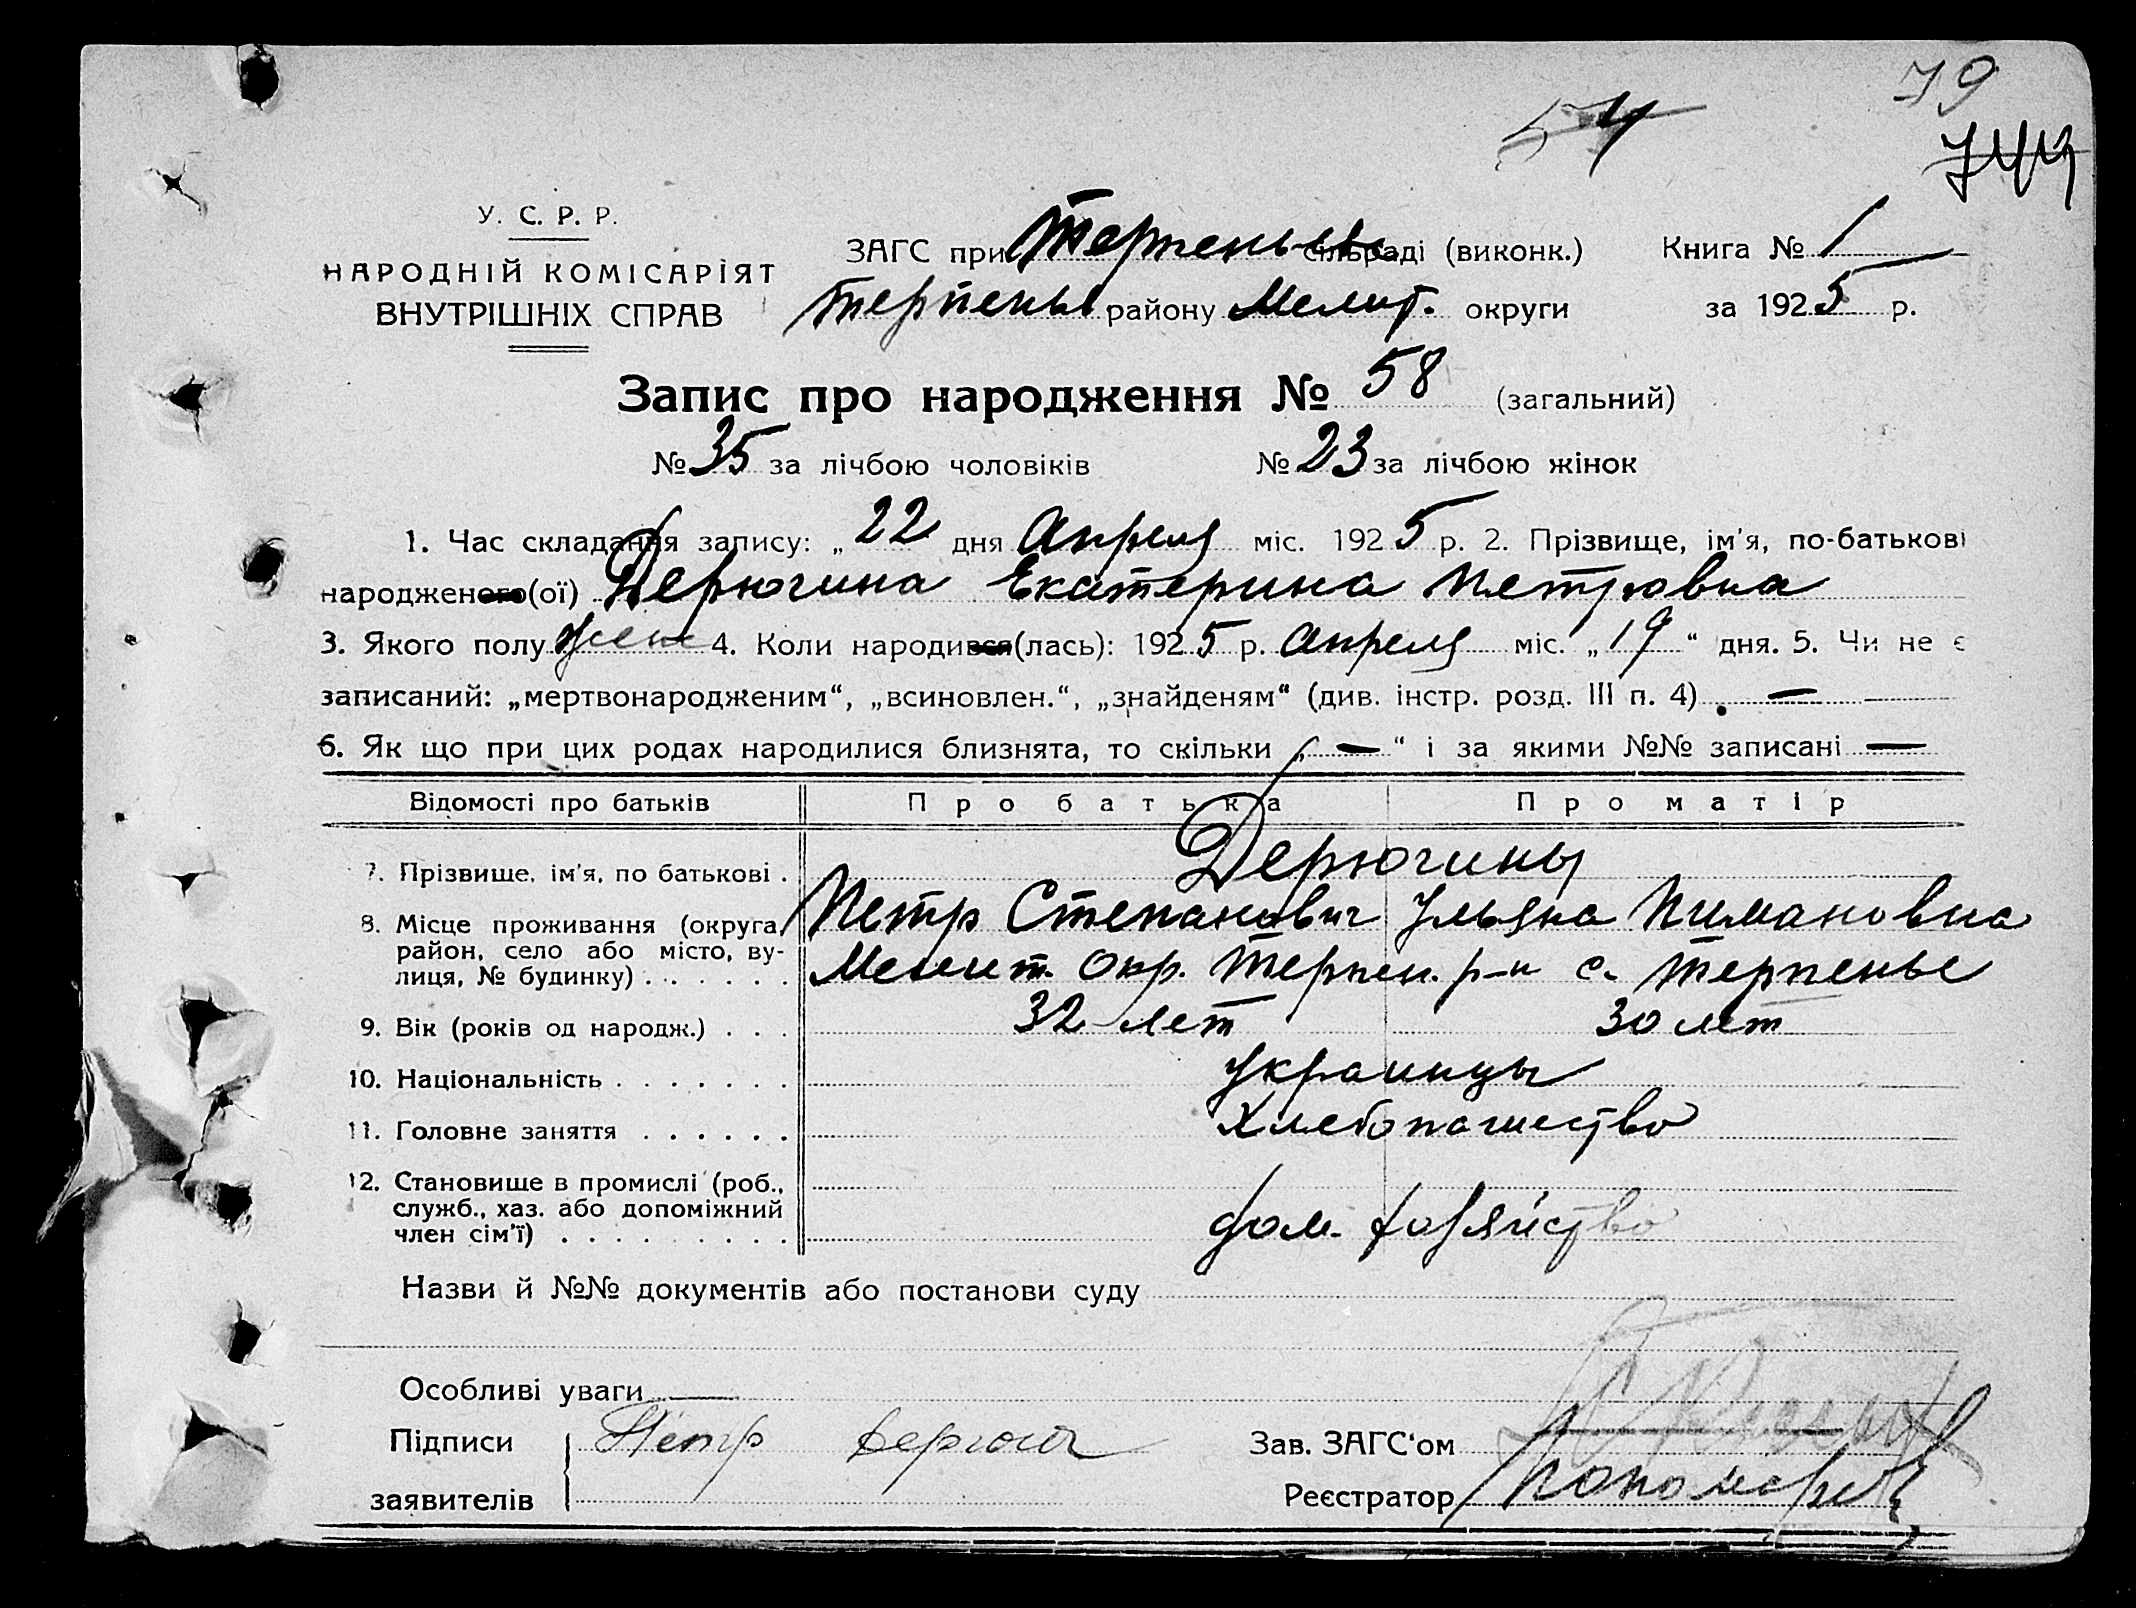 79
54
744
У. С. Р. Р.
НАРОДНІЙ КОМІСАРІЯТ
ВНУТРІШНІХ СПРАВ
ЗАГС при Терпеньев сільраді (виконк.) Книга № 1
Терпеньв району Мелит. округи за 1925 р.
Запис про народження № 58 (загальний)
№ 35 за лічбою чоловіків № 23 за лічбою жінок
1. Час складання запису: „22 дня Апреля міс. 1925 р. 2. Прізвище, ім'я, по-батькові
народженого(ої) Дерюгина Екатерина Петровна
3. Якого полу жен 4. Коли народився(лась): 1925 р. Апреля міс. „19“ дня. 5. Чи не є
записаний: „мертвонародженим“, „всиновлен.“, „знайденям“ (див. інстр. розд. III п. 4) —
6. Як що при цих родах народилися близнята, то скільки „—“ і за якими №№ записані —
Відомості про батьків Про батька Про матір
7. Прізвище, ім'я, по батькові . Дерюгины
Петр Степанович Ульяна Пимановна
8. Місце проживання (округа, район, село або місто, вулиця, № будинку) . . . . . . Мелит. окр. Терпен. р-н с. Терпенье
9. Вік (років од народж.) . . . 32 лет 30 лет
10. Національність . . . . . . . Украинцы
11. Головне заняття . . . . . . Хлебопашество
12. Становище в промислі (роб., служб., хаз. або допоміжний член сім'ї) . . . . . . . . . дом. хозяйство
Назви й №№ документів або постанови суду
Особливі уваги —
Підписи заявителів Петр Дерюга
Зав. ЗАГС'ом
Реєстратор Пономарев